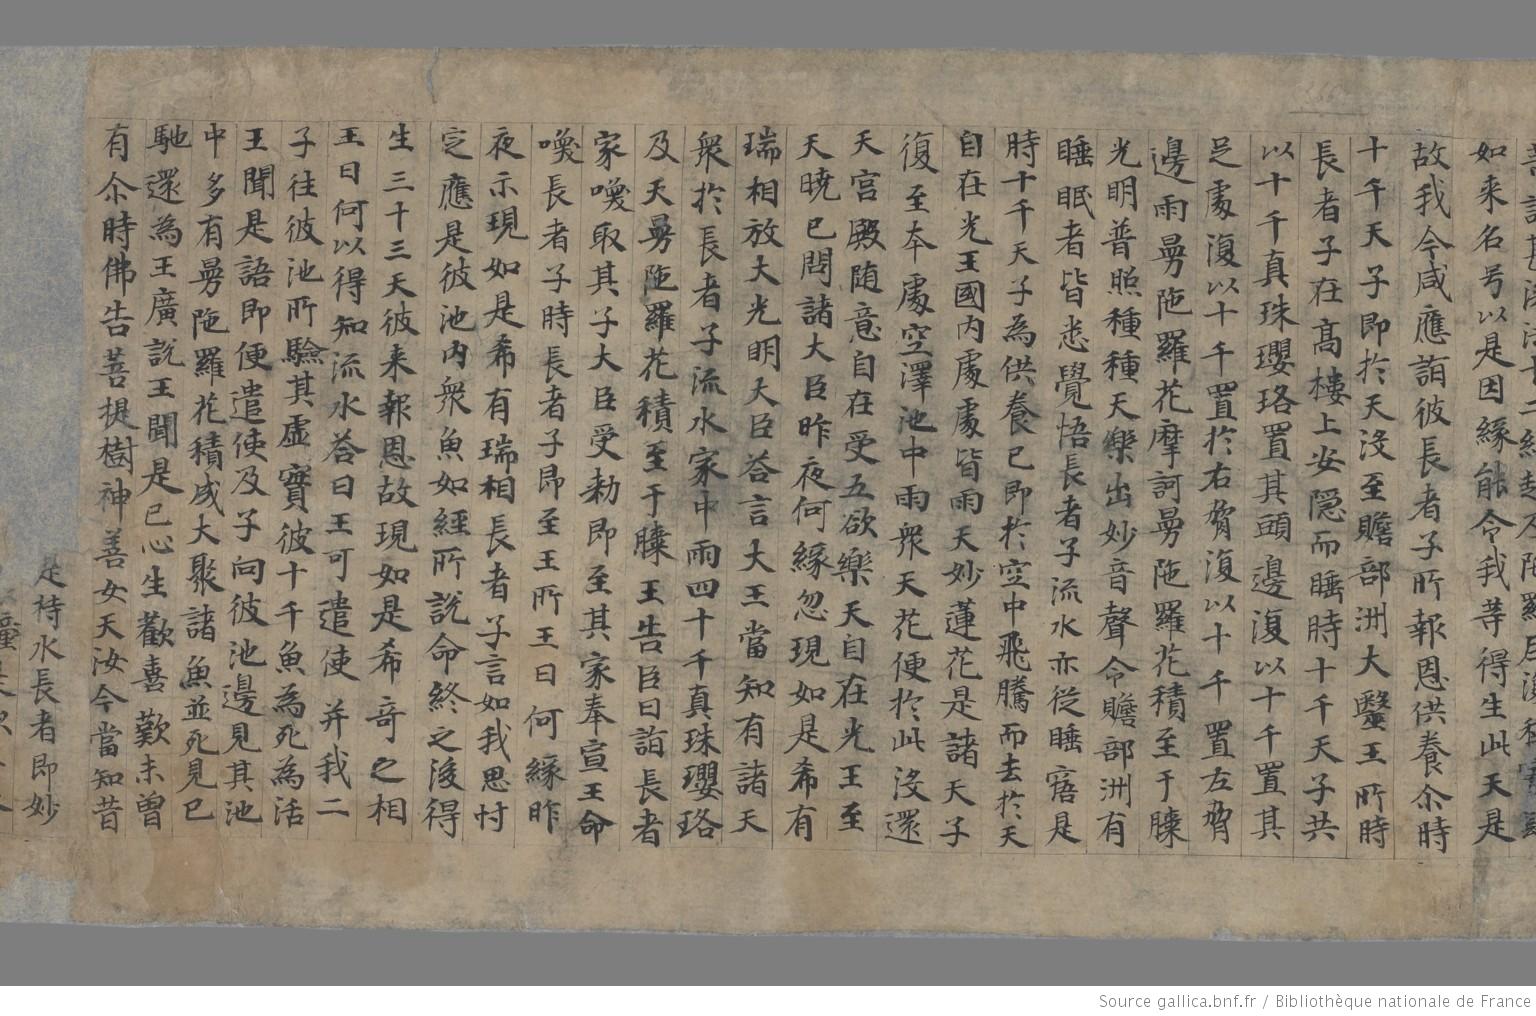 如来名号以是因緣能令我等得生此天是
故我今咸應詣彼長者子所報恩供養尒時
十千天子即於天沒至贍部洲大毉王所時
長者子在高樓上安隱而睡時十千天子共
以十千真珠瓔珞置其頭邊復以十千置其
足處復以十千置於右脅復以十千置左脅
邊雨曼陁羅花摩訶曼陁羅花積至于膝
光明普照種種天樂出妙音聲令贍部洲有
睡眠者皆悉覺悟長者子流水亦從睡寤是
時十千天子為供養已即於空中飛騰而去於天
自在光王國內處處皆雨天妙蓮花是諸天子
復至本處空澤池中雨衆天花便於此沒還
天宮殿随意自在受五欲樂天自在光王至
天曉已問諸大臣昨夜何緣忽現如是希有
瑞相放大光明天臣荅言大王當知有諸天
衆於長者子流水家中雨四十千真珠瓔珞
及天曼陁羅花積至于膝王告臣曰詣長者
家喚取其子大臣受勑即至其家奉宣王命
喚長者子時長者子即至王所王曰何緣昨
夜示現如是希有瑞相長者子言如我思忖
定應是彼池內衆魚如經所說命終之後得
生三十三天彼来報恩故現如是希竒之相
王曰何以得知流水荅曰王可遣使并我二
子往彼池所驗其虛實彼十千魚為死為活
王聞是語即便遣使及子向彼池邊見其池
中多有曼陁羅花積成大聚諸魚並死見已
馳還為王廣說王聞是已心生歡喜歎未曾
有尒時佛告菩提樹神善女天汝今當知昔
是持水長者即妙